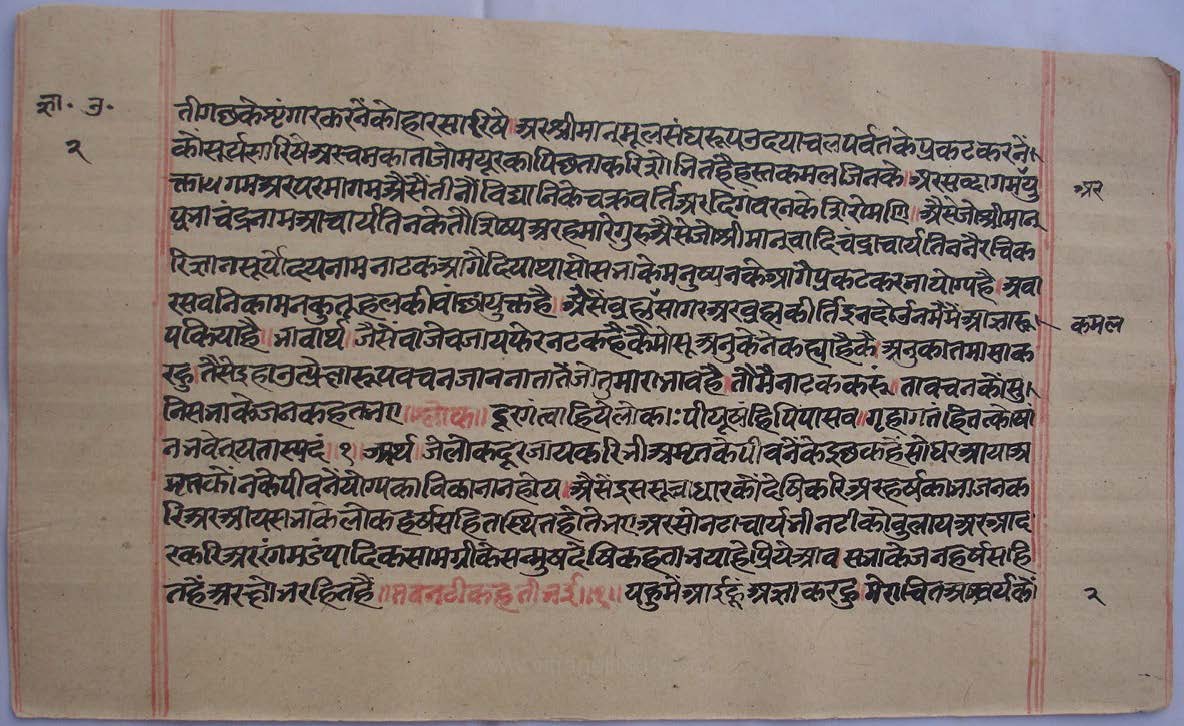 ज्ञा. सू.
२
ती गछ के शृंगार करनैं को हार सारिषे ॥ अर श्रीमान् मूलसंघरूप उदयाचल पर्वत के प्रकट करनें
कों सूर्य सारिषे अर चमकाता जो मयूर का पिछ ता करि शोभित है हस्तकमल जिनके । अर सब्दागम यु
अर
क्तागम अर परमागम अैसैं तीनौं विद्यानि के चक्रवर्ति अर दिगंवरन के शिरोमणि ॥ अैसे जो श्रीमान्
प्रभाचंद्र नाम आचार्य तिन के तौ शिष्य अर हमारे गुरु अैसे जो श्रीमान् वादिचंद्राचार्य तिननै रचि क
रि ज्ञानसूर्योदय नाम नाटक आगै दिया था सो सभा के मनुष्यन के आगै प्रकट करना योग्य है । अवा
रसवनिका मन कुतूहल की वांछा युक्त है ॥ अैसें व्रह्मसागर अर व्रह्मकीर्ति इन दोउन मैंमें आज्ञारू
कमल
प किया है ॥ भावार्थ ॥ जैसें वाजे वजाय फेर नट कहै कै मोसू अमुके नेक ह्या है कै अमुका तमासा क
रहु । तैसे इहा उत्प्रेक्षारूप वचन जानना तातैं जो तुमारा भाव है । तौ मै नाटक करूं । ता वचन कों सु
नि सभा के जन कहत भए ॥ श्लोक ॥ दूरगंत्वा हि ये लोकाः पीयूषं हि पिपासव ॥ गृहागतं हि तत्केषां
न भवेत् यतास्पदं । १ । अर्थ ॥ जे लोक दूर जाय करि भी अमृत के पीवनैं के इछक हैं सो घर आया अ
मृत कों न के पीवनैं योग्य का विकाना न होय ॥ अैसें इस सूत्रधार कों देषि करि अर हर्ष का भाजन क
रि अर आय सभा के लोक हर्ष सहित स्थित होते भए अर सो नटाचार्य भी नटी कों वुलाय अर आद
र करि अर रंगमडंपादिक सामग्री कें सन्मुष देषि कहता भया हे प्रिये आव सभा के जन हर्ष सहि
त हैं अर क्षोभ रहित हैं ॥ तव नटी कहती भई ॥ १ ॥ प्रभु मैं आई हूं अज्ञा करहु । मेरा चित अश्चर्य कों
२